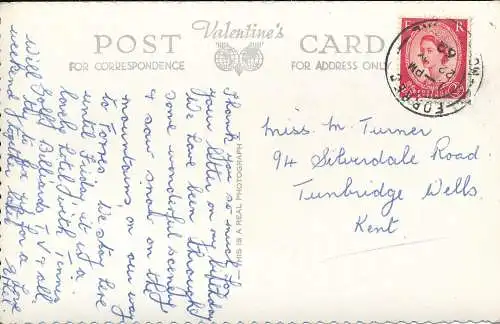 Valentine's
POST CARD
FOR CORRESPONDENCE
FOR ADDRESS ONLY
THIS IS A REAL PHOTOGRAPH
FORRES
PM
Miss M. Turner
94 Silverdale Road
Tunbridge Wells
Kent
Thank you so much for
your letter on my birthday
We have been through
some wonderful scenery
& saw snow on the
mountains, on our way
to Forres. We stay here
until Friday, it is a
lovely hotel with Tennis
Golf Billiards, T.V & all.
Will
for a
Love